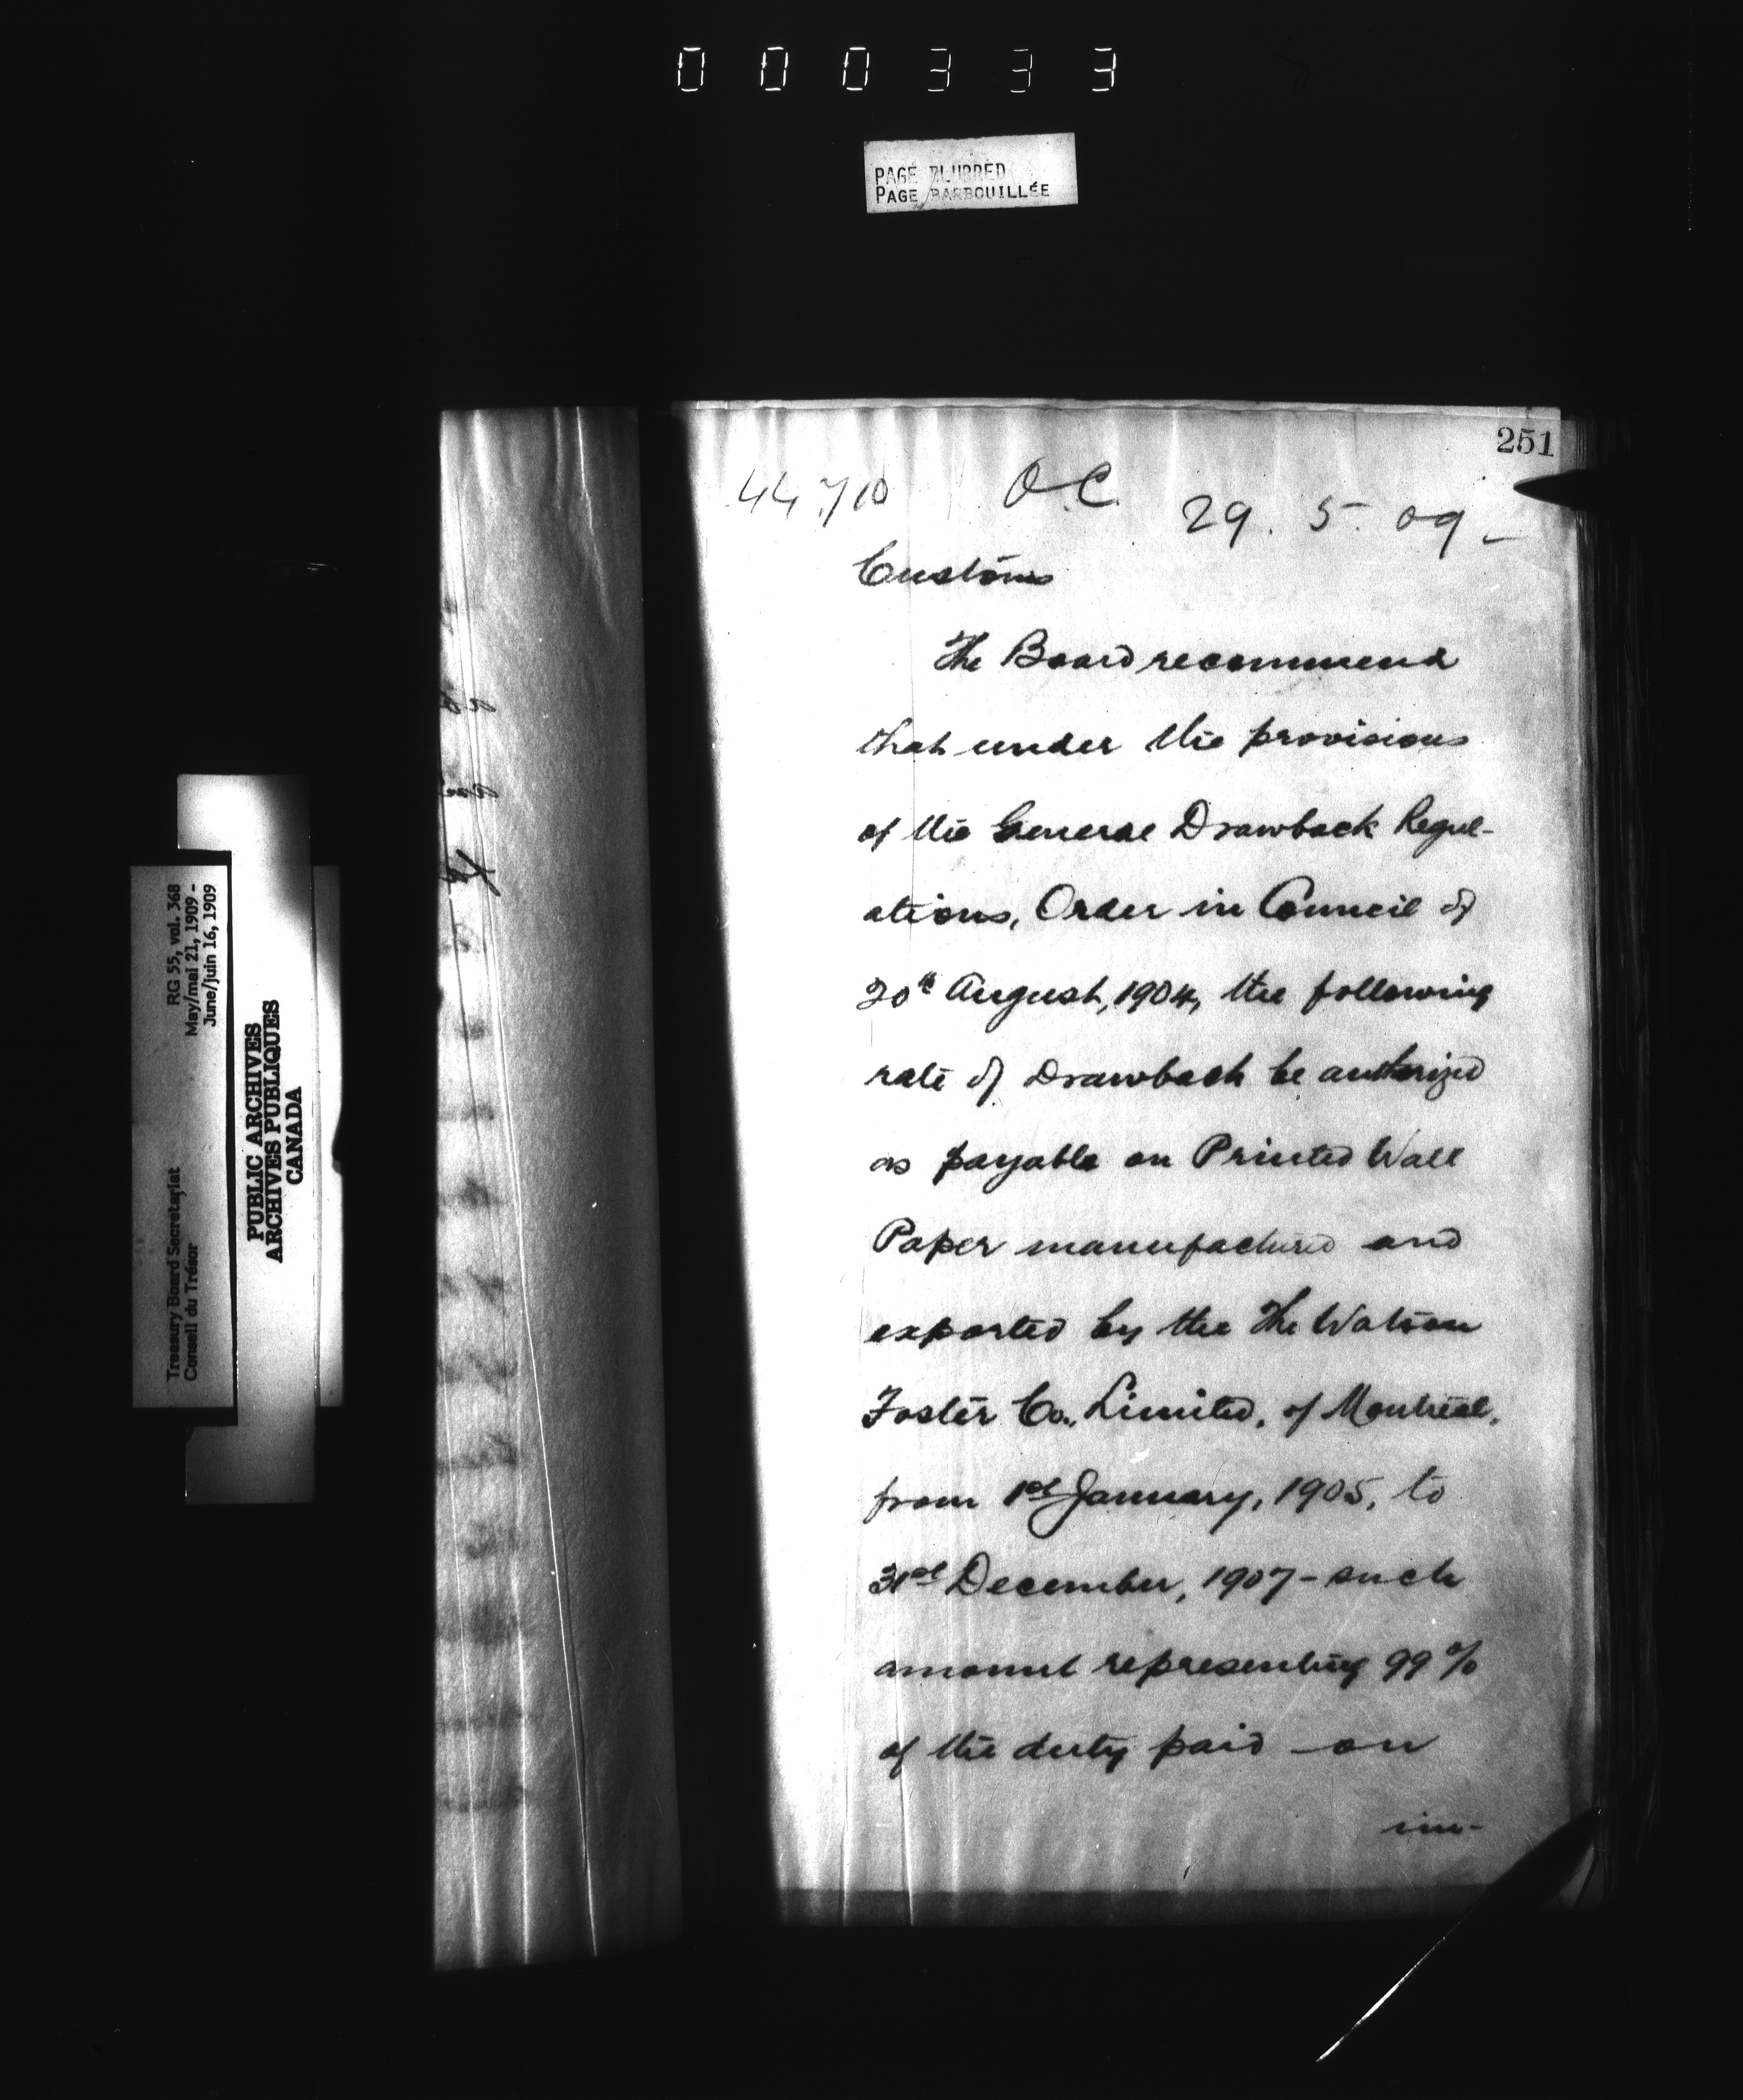 000333
PAGE BLURRED
PAGE BARBOUILLÉE
251
44710 O.C. 29. 5. 09
Customs
The Board recommend
that under the provisions
of the General Drawback Regul-
ations, Order in Council of
20th August, 1904, the following
rate of Drawback be authorized
as payable on Printed Wall
Paper manufactured and
exported by the The Watson
Foster Co., Limited, of Montreal,
from 1st January, 1905, to
31st December, 1907 - such
amount representing 99%
of the duty paid on
im-
Treasury Board Secretariat RG 55, vol. 368
Conseil du Trésor May/mai 21, 1909 -
June/juin 16, 1909
PUBLIC ARCHIVES
ARCHIVES PUBLIQUES
CANADA